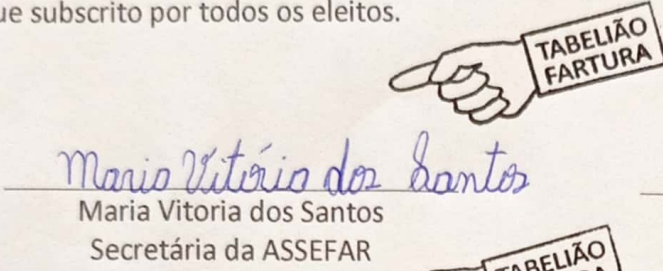 ue subscrito por todos os eleitos.
TABELIÃO
FARTURA
Maria Vitória dos Santos
Maria Vitoria dos Santos
Secretária da ASSEFAR
TABELIÃO